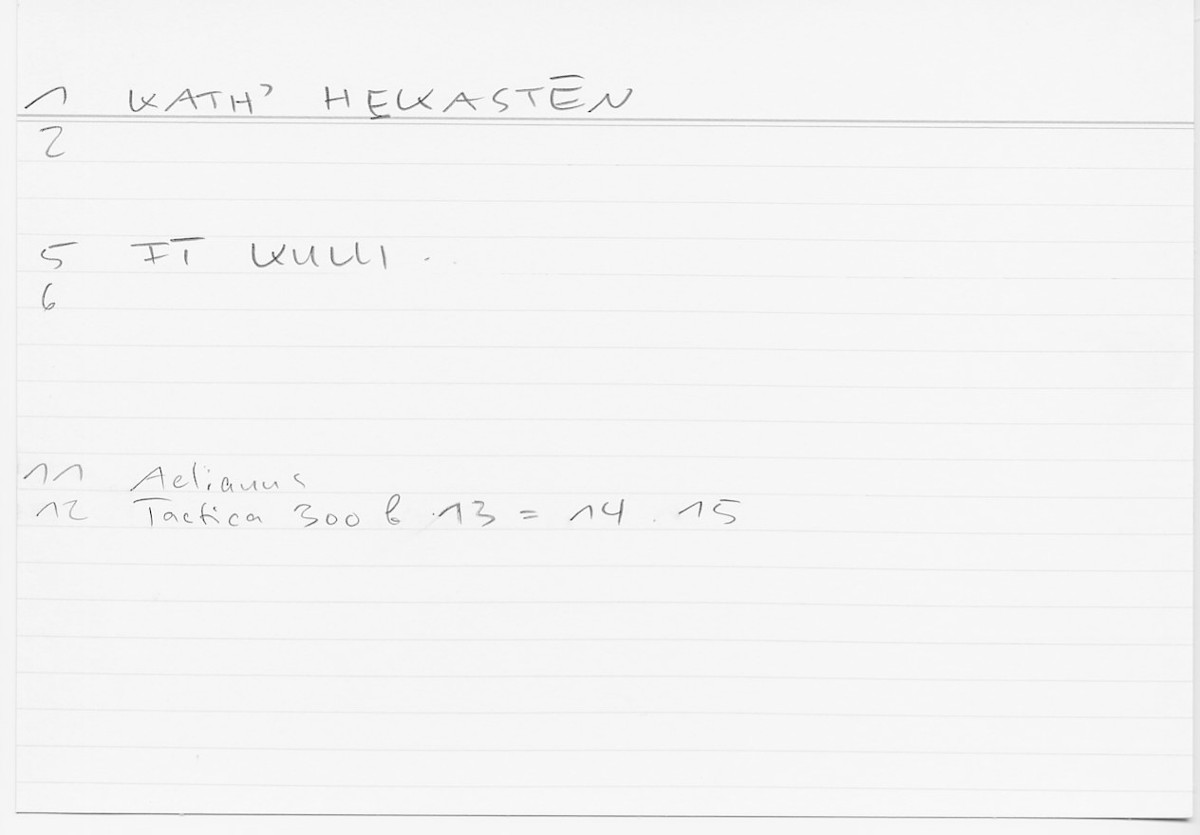 1 KATH' HEKASTĒN
2
5 FĪ KULLI ..
6
11 Aelianus
12 Tactica 300 b .13 = 14 . 15